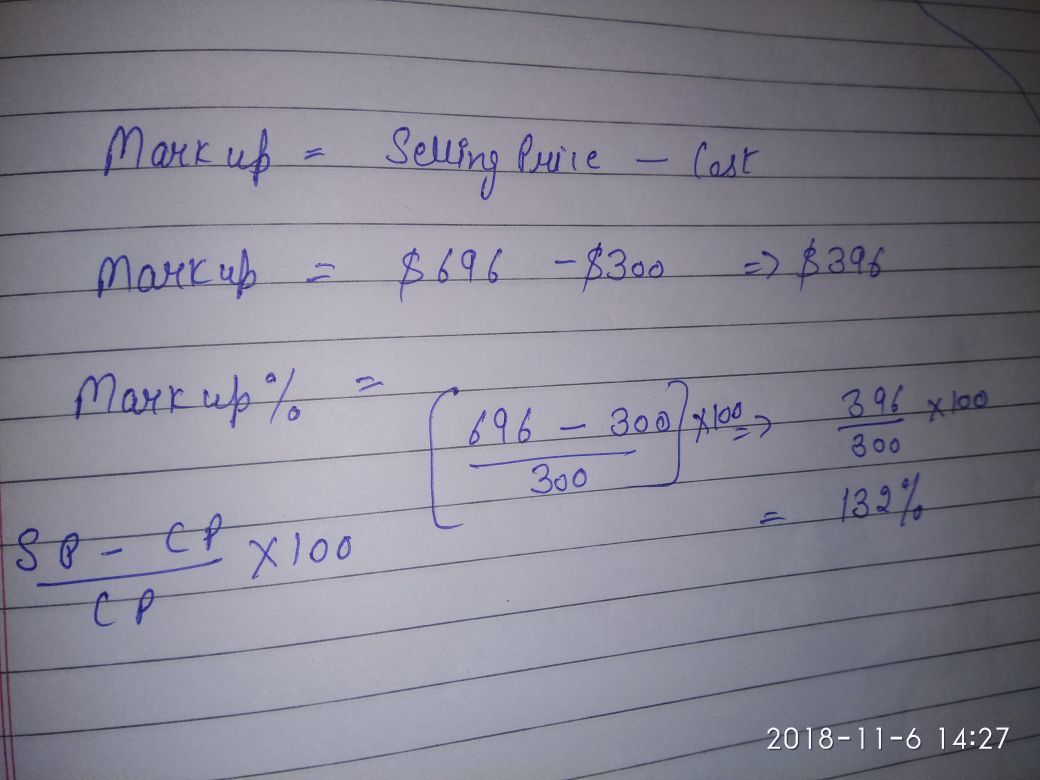 Mark up = Selling Price - Cost
Mark up = $696 - $300 => $396
Mark up % = [696 - 300 / 300] x100 => 396 / 300 x100
= 132%
SP - CP / CP X100
2018-11-6 14:27